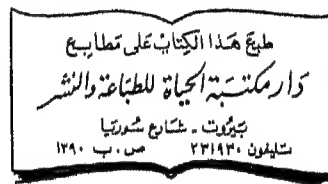 طبع هَذا الكِتابْ عَلى مَطابِع
دار مكتبة الحياة للطباعة والنشر
بَيروت - شارع سُوريا
تليفون ٢٣١٩٣٠ ص.ب ١٣٩٠